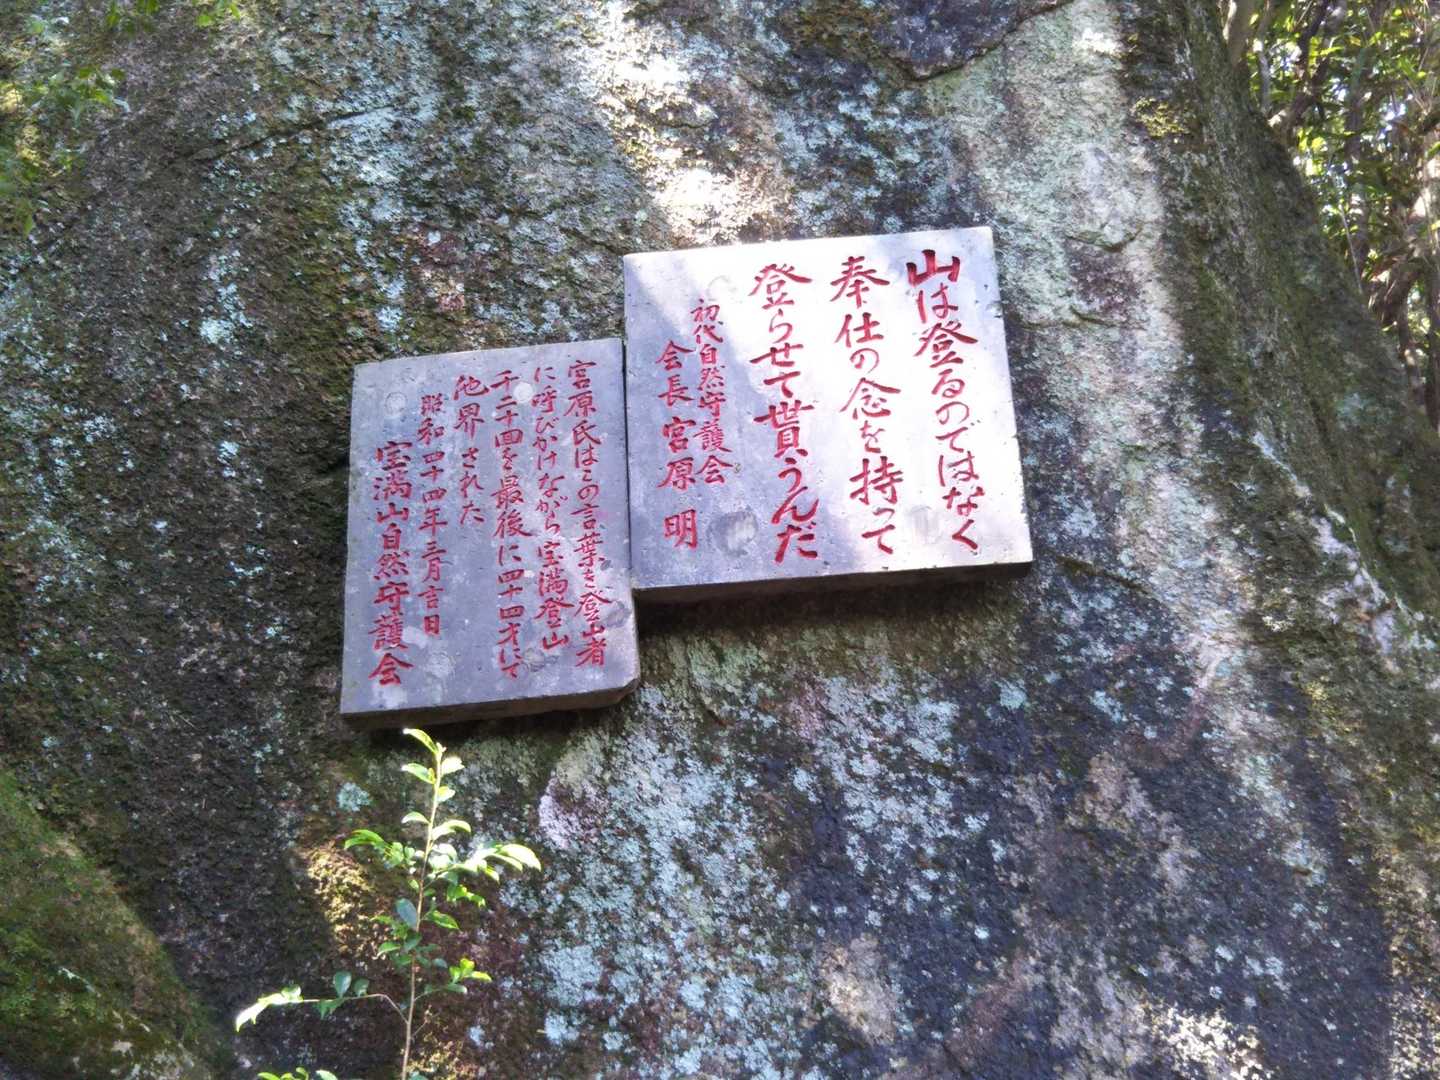 山は登るのではなく
奉仕の念を持って
登らせて貰うんだ
初代自然守護会
会長宮原 明
宮原氏はこの言葉を登山者
に呼びかけながら宝満登山
千二十回を最後に四十四才にて
他界された
昭和四十四年三月吉日
宝満山自然守護会